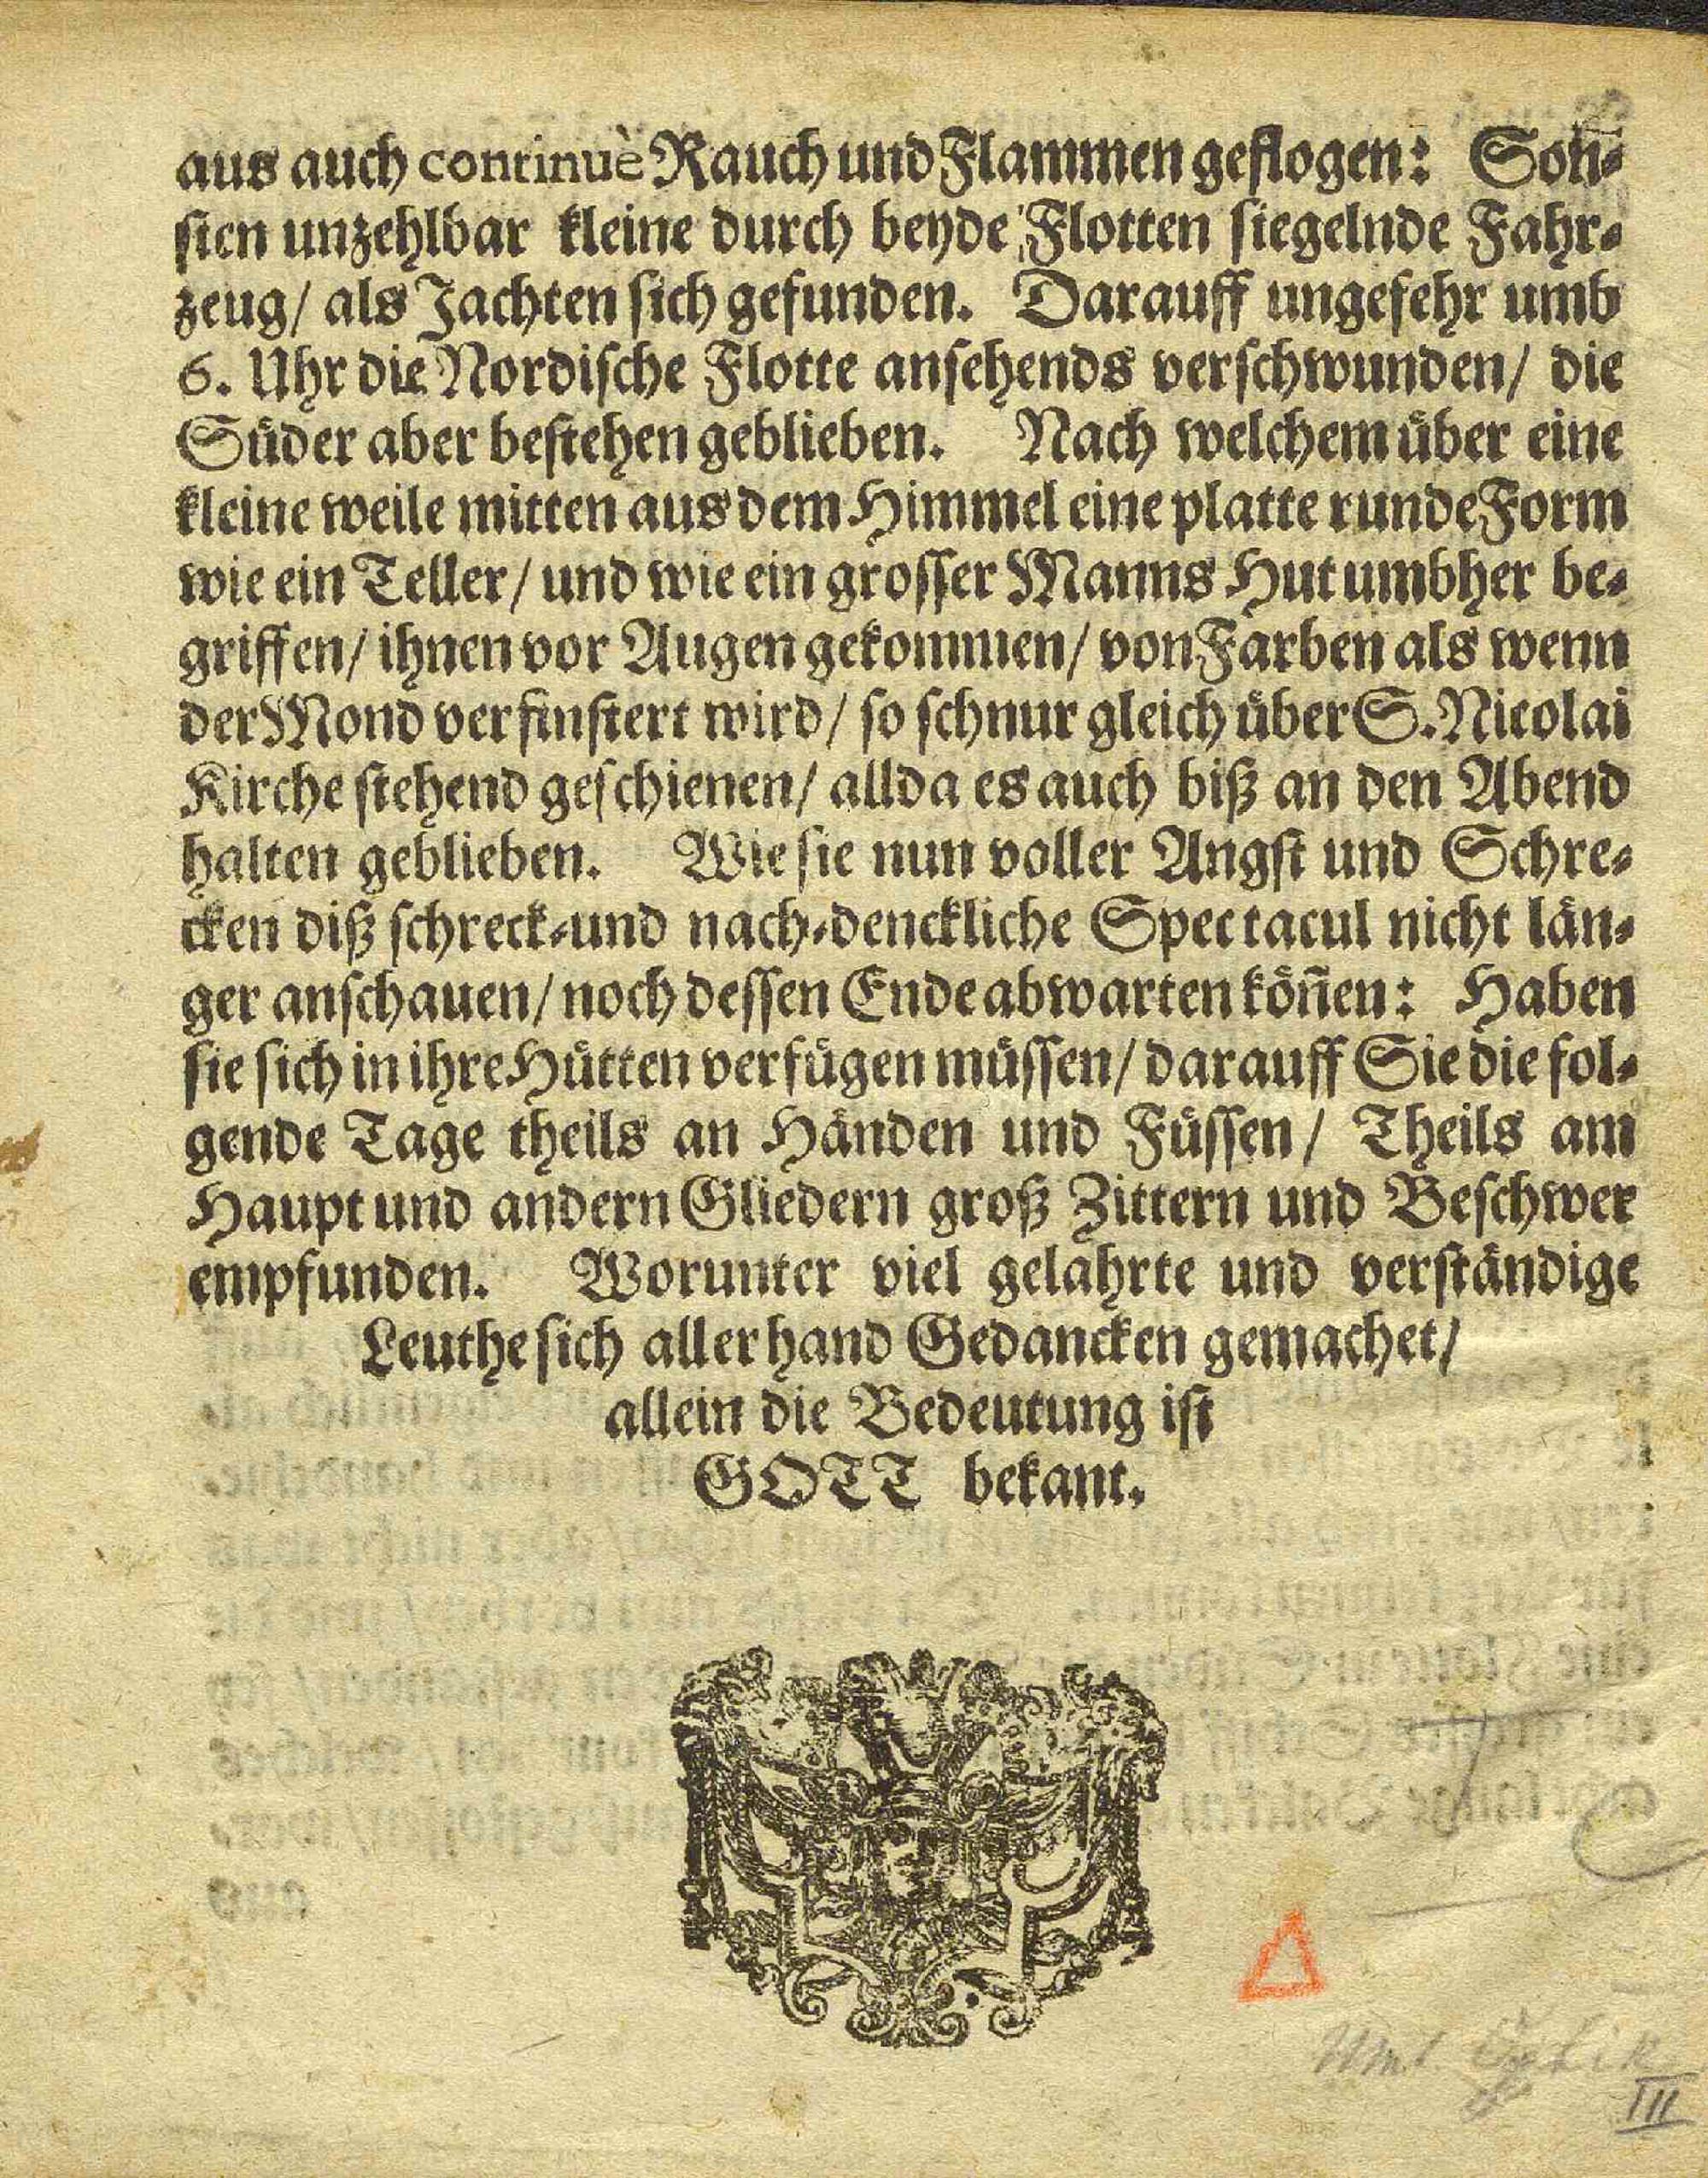 aus auch continuè Rauch und Flammen geflogen: Son⸗
sten unzehlbar kleine durch beyde Flotten siegelnde Fahr⸗
zeug/ als Jachten sich gefunden. Darauff ungefehr umb
6. Uhr die Nordische Flotte ansehends verschwunden/ die
Süder aber bestehen geblieben. Nach welchem über eine
kleine weile mitten aus dem Himmel eine platte runde Form
wie ein Teller/ und wie ein grosser Manns Hut umbher be⸗
griffen/ ihnen vor Augen gekommen/ von Farben als wenn
der Mond verfinstert wird/ so schnur gleich über S. Nicolai
Kirche stehend geschienen/ allda es auch biß an den Abend
halten geblieben. Wie sie nun voller Angst und Schre⸗
cken diß schreck⸗und nach⸗denckliche Spectacul nicht län⸗
ger anschauen/ noch dessen Ende abwarten köñen: Haben
sie sich in ihre Hütten verfügen müssen/ darauff Sie die fol⸗
gende Tage theils an Händen und Füssen/ Theils am
Haupt und andern Gliedern groß Zittern und Beschwer
empfunden. Worunter viel gelahrte und verständige
Leuthe sich allerhand Gedancken gemachet/
allein die Bedeutung ist
GOTT bekant.
III